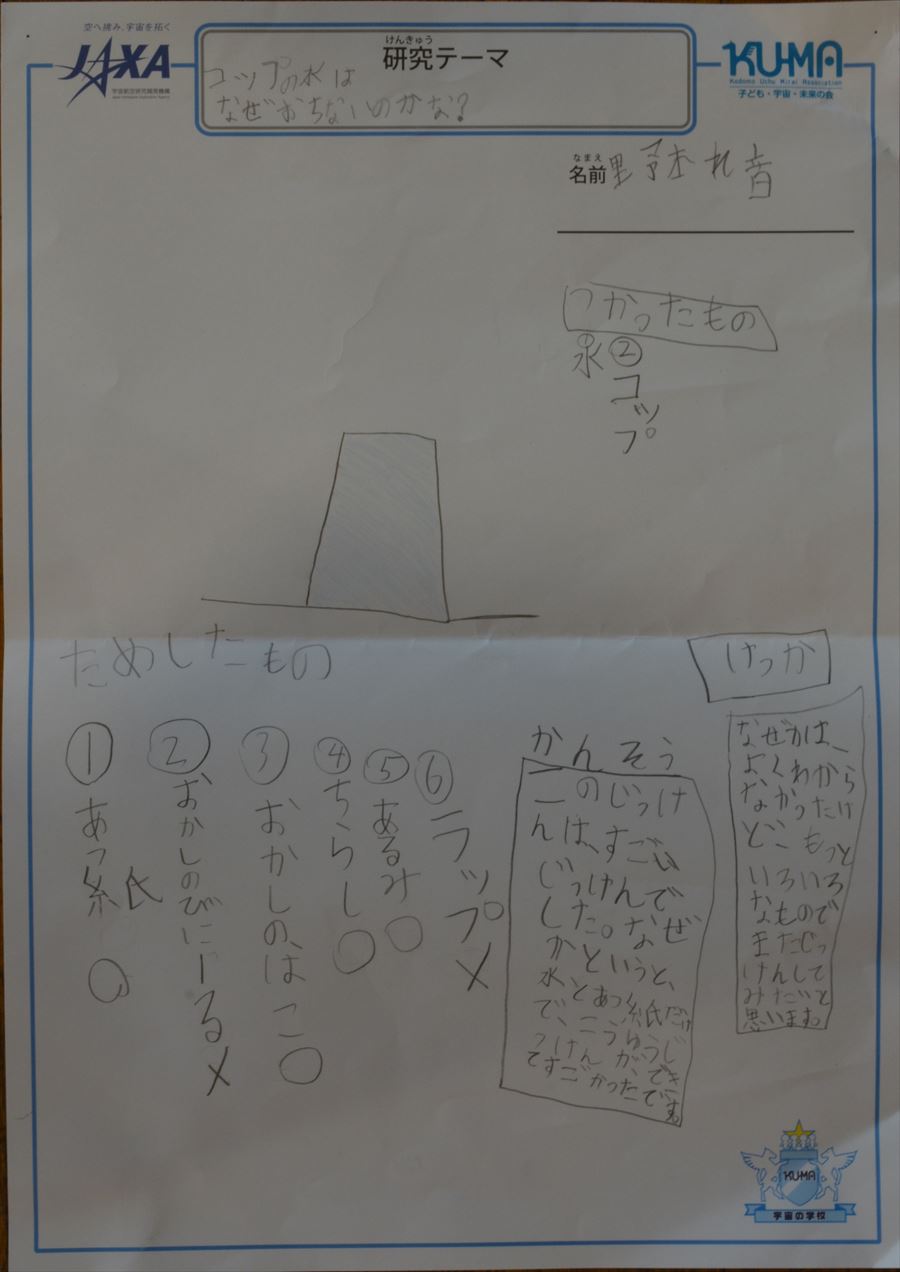 空へ挑み、宇宙を拓く
JAXA
宇宙航空研究開発機構
Japan Aerospace Exploration Agency
けんきゅう
研究テーマ
コップの水は
なぜおちないのかな?
KU-MA
Kodomo Uchu Mirai Association
子ども・宇宙・未来の会
なまえ
名前
音
つかったもの
水
②コップ
ためしたもの
①あつ紙〇
②おかしのびにーる×
③おかしのはこ〇
④ちらし〇
⑤あるみ〇
⑥ラップ×
けっか
なぜかは、
よくわから
なかったけ
どもっと
いろいろ
なもので
またじっ
けんして
みたいと
思います。
かんそう
このじっけ
んは、すごい
じっけんで
した。なぜ
かというと、
水とあつ紙だけ
で、こうゆうじ
っけんが、でき
てすごかったです。
KU-MA
宇宙の学校